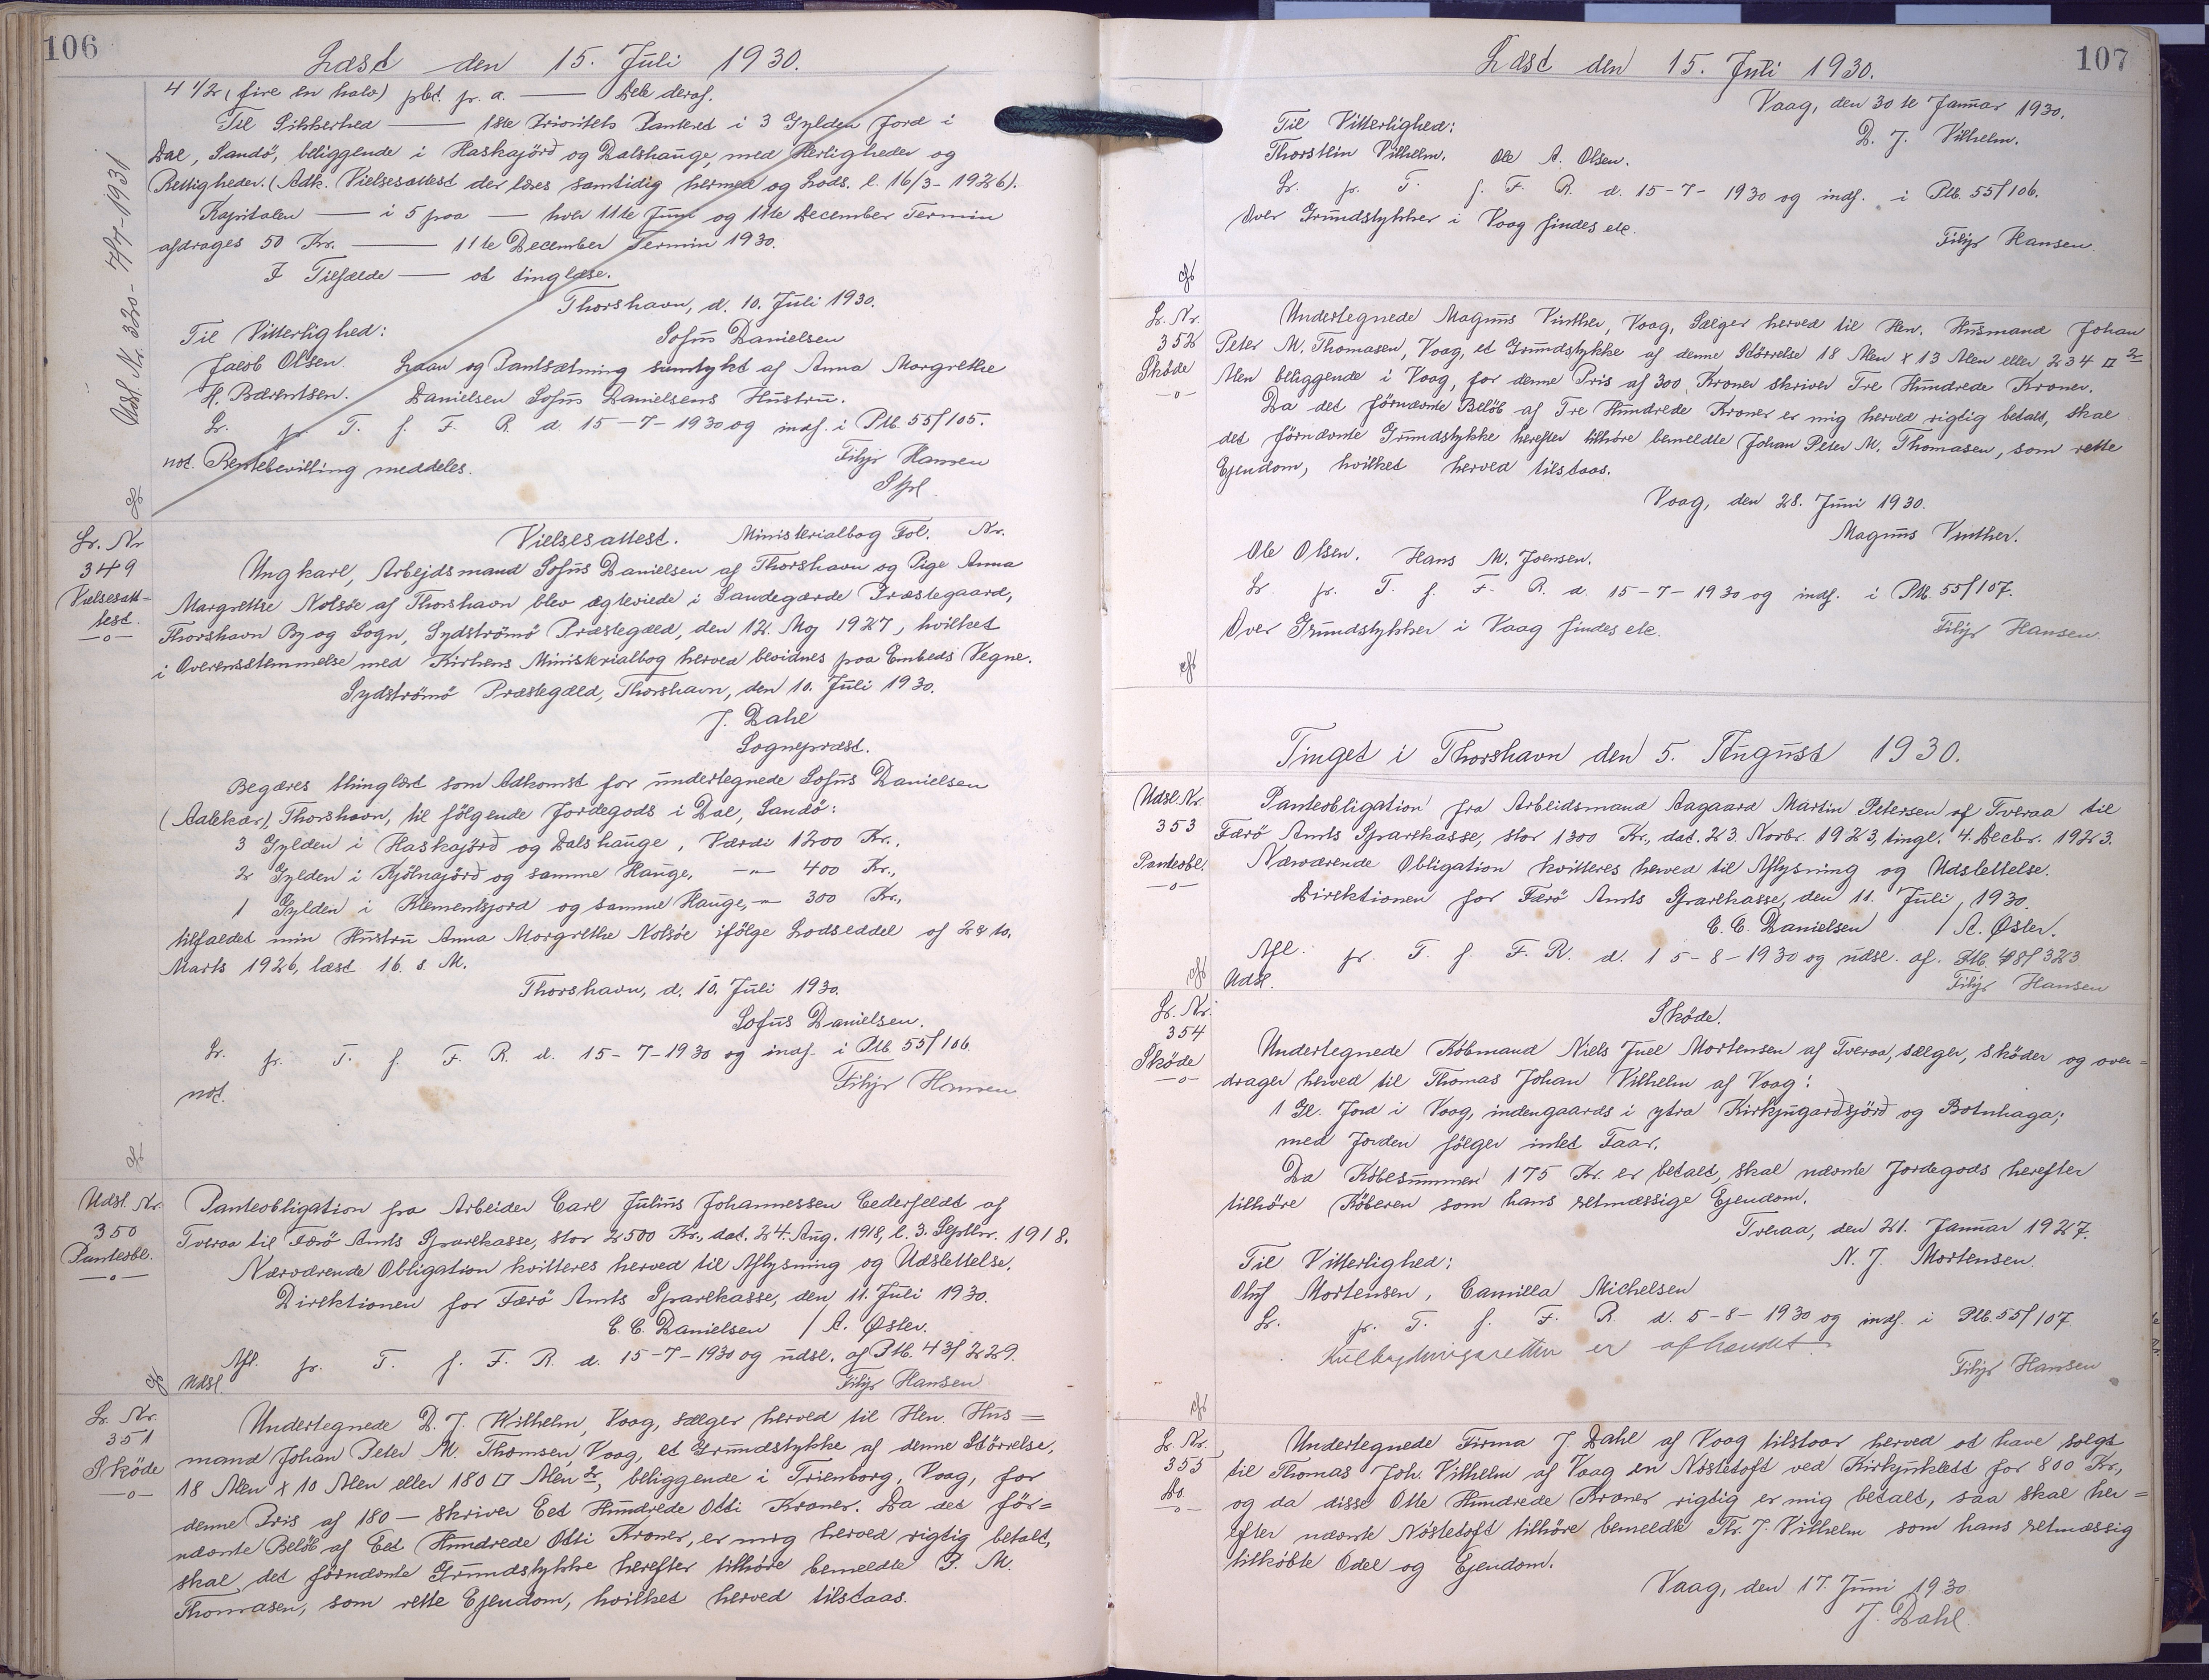 106
Læst den 15. Juli 1930.
4 1/2 (fire en halv) pCt. pr. a. — Dele deraf.
Til Sikkerhed — 1ste Prioritets Panteret i 3 Gylden Jord i
Dal, Sandö, beliggende i Haskajörð og Dalshauge, med Herligheder og
Rettigheder. (Adk. Vielsesattest der læses samtidig hermed og Lods. l. 16/3-1926).
Kapitalen — i 5 paa — hver 11te Juni og 11te December Termin
afdrages 50 Kr. — 11te December Termin 1930.
I Tilfælde — at tinglæse.
Thorshavn, d. 10. Juli 1930.
Til Vitterlighed: Sofus Danielsen
Jacob Olsen. Laan og Pantsætning samtykt af Anna Margrethe
H. Bærentsen. Danielsen Sofus Danielsens Hustru.
Lr. pr. T. f. F. R. d. 15-7-1930 og indf. i Ptb. 55/105.
not. Rentebevilling meddeles. Filip Hansen
Udsl. Nr. 320 - 7/7-1931
Lr. Nr. 349
Vielsesattest.
—o—
Vielsesattest. Ministerialbog Fol. Nr.
Ungkarl, Arbejdsmand Sofus Danielsen af Thorshavn og Pige Anna
Margrethe Nolsöe af Thorshavn blev ægteviede i Sandegærde Præstegaard,
Thorshavn By og Sogn, Sydströmö Præstegæld, den 12. Maj 1927, hvilket
i Overensstemmelse med Kirkens Ministerialbog herved bevidnes paa Embeds Vegne.
Sydströmö Præstegæld, Thorshavn, den 10. Juli 1930.
J. Dahl
Sognepræst.
Begæres thinglæst som Adkomst for undertegnede Sofus Danielsen
(Aalekær), Thorshavn, til følgende Jordegods i Dal, Sandö:
3 Gylden i Haskajörð og Dalshauge, Værdi 1200 Kr.,
2 Gylden i Kjölnajörð og samme Hauge, —"— 400 Kr.,
1 Gylden i Klementsjord og samme Hauge, —"— 300 Kr.,
tilfaldet min Hustru Anna Margrethe Nolsöe ifölge Lodseddel af 2 & 10.
Marts 1926, læst 16. s. M.
Thorshavn, d. 10. Juli 1930.
Sofus Danielsen.
Lr. pr. T. f. F. R. d. 15-7-1930 og indf. i Ptb. 55/106
not. Filip Hansen
Udsl. Nr. 350
Panteobl.
—o—
Panteobligation fra Arbeider Carl Julius Johannessen Cederfeldt af
Tveraa til Færö Amts Sparekasse, stor 2500 Kr., dat. 24. Aug. 1918, l. 3. Septbr. 1918.
Nærværende Obligation kvitteres herved til Aflysning og Udslettelse.
Direktionen for Færö Amts Sparekasse, den 11. Juli 1930.
C. C. Danielsen / A. Øster.
Afl. pr. T. f. F. R. d. 15-7-1930 og udsl. af Ptb. 43/229.
Udsl. Filip Hansen
Lr. Nr. 351
Sköde
—o—
Undertegnede D. J. Wilhelm, Vaag, sælger herved til Hen. Hus=
mand Johan Peter M. Thomsen, Vaag, et Grundstykke af denne Störrelse,
18 Alen x 10 Alen eller 180 □ Alen 2, beliggende i Trienborg, Vaag, for
denne Pris af 180 — skriver Eet Hundrede Otti Kroner. Da det för=
nævnte Beløb af Eet Hundrede Otti Kroner, er mig herved rigtig betalt,
skal det förnævnte Grundstykke herefter tilhöre bemeldte P. M.
Thomasen, som rette Ejendom, hvilket herved tilstaas.
107
Læst den 15. Juli 1930.
Vaag, den 30te Januar 1930.
Til Vitterlighed: D. J. Vilhelm.
Thorstein Vilhelm. Ole A. Olsen.
Lr. pr. T. f. F. R. d. 15-7-1930 og indf. i Ptb. 55/106.
Over Grundstykker i Vaag findes etc.
Filip Hansen.
Lr. Nr. 352
Sköde
—o—
Undertegnede Magnus Vinther, Vaag, Sælger herved til Hen. Husmand Johan
Peter M. Thomasen, Vaag, et Grundstykke af denne Störrelse 18 Alen x 13 Alen eller 234 □ 2
Alen beliggende i Vaag, for denne Pris af 300 Kroner skriver Tre Hundrede Kroner.
Da det förnævnte Belöb af Tre Hundrede Kroner er mig herved rigtig betalt, skal
det förnævnte Grundstykke herefter tilhöre bemeldte Johan Peter M. Thomasen, som rette
Ejendom, hvilket herved tilstaas.
Vaag, den 28. Juni 1930.
Magnus Vinther.
Ole Olsen. Hans M. Joensen.
Lr. pr. T. f. F. R. d. 15-7-1930 og indf. i Ptb. 55/107.
Over Grundstykker i Vaag findes etc. Filip Hansen.
Tinget i Thorshavn den 5. August 1930.
Udsl. Nr. 353
Panteobl.
—o—
Panteobligation fra Arbeidsmand Aagaard Martin Petersen af Tveraa til
Færö Amts Sparekasse, stor 1300 Kr., dat. 23. Novbr. 1923, tingl. 4. Decbr. 1923.
Nærværende Obligation kvitteres herved til Aflysning og Udslettelse.
Direktionen for Færö Amts Sparekasse, den 11. Juli, 1930.
C. C. Danielsen / A. Øster.
Afl. pr. T. f. F. R. d. 15-8-1930 og udsl. af. Ptb. 48/323
Udsl. Filip Hansen
Lr. Nr. 354
Sköde
—o—
Sköde.
Undertegnede Köbmand Niels Juel Mortensen af Tveraa, sælger, sköder og over=
drager herved til Thomas Johan Vilhelm af Vaag:
1 Gl. Jord i Vaag, indengaards i ytra Kirkjugarðsjörð og Botnhaga;
med Jorden fölger intet Faar.
Da Köbesummen 175 Kr. er betalt, skal nævnte Jordegods herefter
tilhöre Köberen som hans retmæssige Ejendom.
Tveraa, den 21. Januar 1927.
Til Vitterlighed: N. J. Mortensen.
Oluf Mortensen, Camilla Michelsen
Lr. pr. T. f. F. R. d. 5-8-1930 og indf. i Ptb. 55/107
Kulbrydningsretten er afhændet.
Filip Hansen
Lr. Nr. 355
Do.
—o—
Undertegnede Firma J. Dahl af Vaag tilstaar herved at have solgt
til Thomas Joh. Vilhelm af Vaag en Nöstetoft ved Kirkjuklett for 800 Kr.,
og da disse Otte Hundrede Kroner rigtig er mig betalt, saa skal her=
efter nævnte Nöstetoft tilhöre bemeldte Th. J. Vilhelm som hans retmæssig
tilköbte Odel og Ejendom.
Vaag, den 17. Juni 1930.
J. Dahl